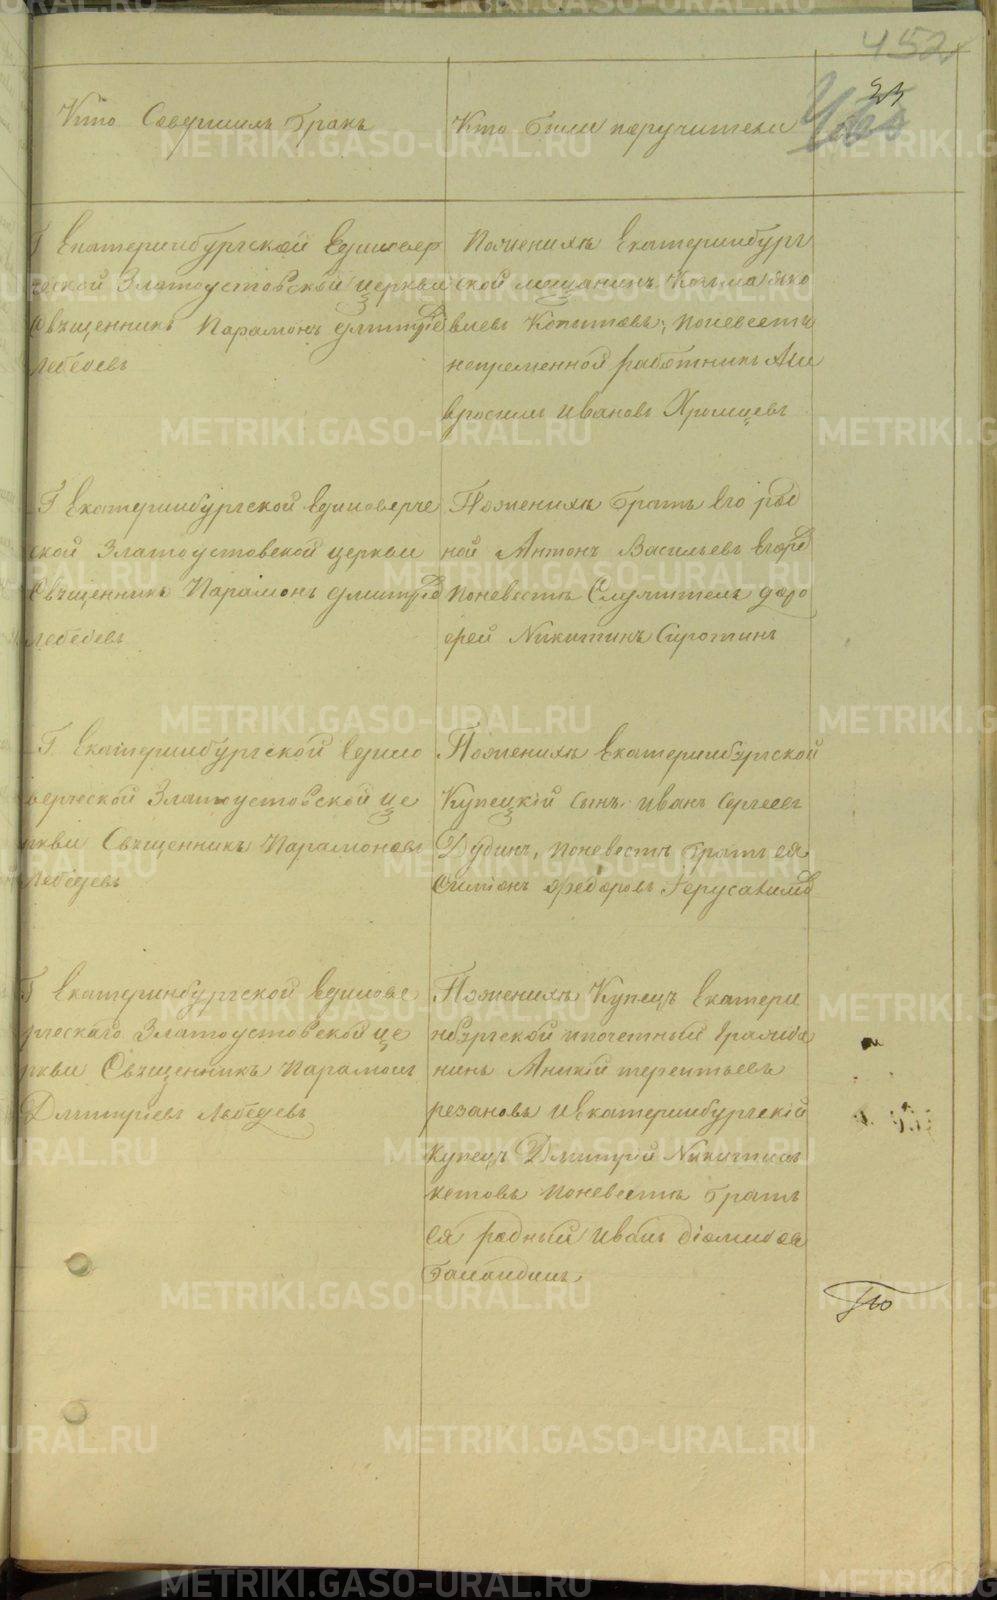 452
23
Кто Совершилъ Бракъ
Кто были поручители
Г Екатеринбургской Единовер
ческой Златоустовской церкви
Священникъ Парамонъ Дмитріев
Лебедевъ
Поженихе Екатеринбург
ской мещанинъ Козма Яко
влевъ Копытовъ, поневесте
непременной работникъ Ам
вросимъ Ивановъ Хромцевъ
Г Екатеринбургской Единоверче
ской Златоустовской церкви
Священникъ Парамонъ Дмитріев
Лебедевъ
Поженихе братъ Его род
ной Антонъ Васильевъ
поневесте Служитель Доро
фей Никитинъ Сиротинъ
Г Екатеринбургской Едино
верческой Златоустовской це
ркви Священникъ Парамоновъ
Лебедевъ
Поженихе Екатеринбургской
Купецкій сынъ Иванъ Сергеевъ
Дубинъ, поневесте братъ ея
Симіонъ Федоровъ Іерусалимов
Г Екатеринбургской Единове
рческаго Златоустовской це
ркви Священникъ Парамонъ
Дмитріевъ Лебедевъ
Поженихе Купецъ Екатери
нбургской ипочетный гражда
нинъ Аникій терентьевъ
резановъ и Екатеринбургскій
купецъ Дмитрій Никитинъ
поневесте братъ
ея родный Иванъ Діомидов
баландинъ
METRIKI.GASO-URAL.RU